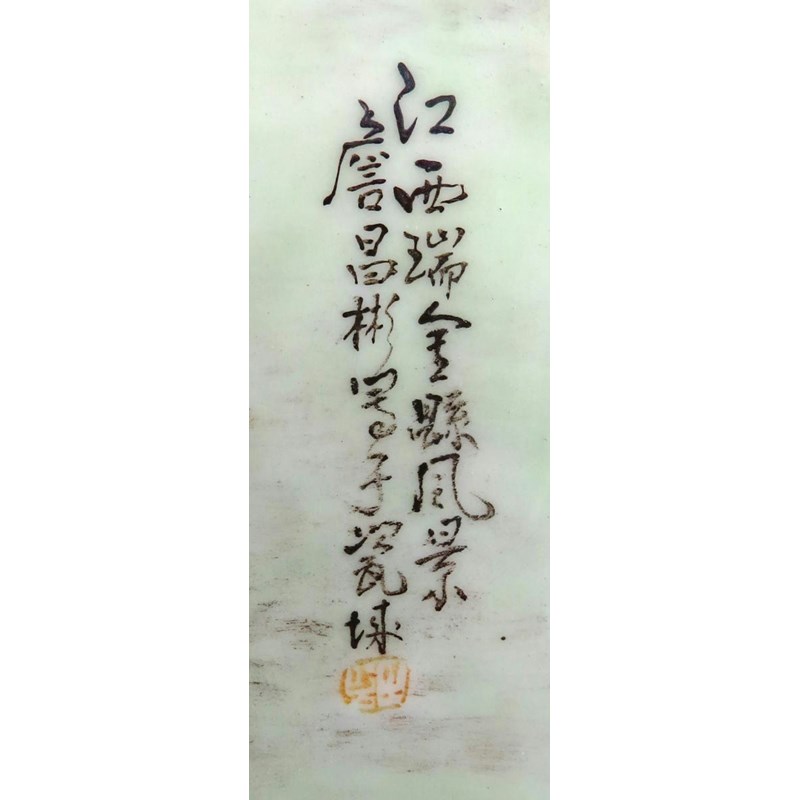 江西瑞金縣風景
詹昌彬寫于瓷城